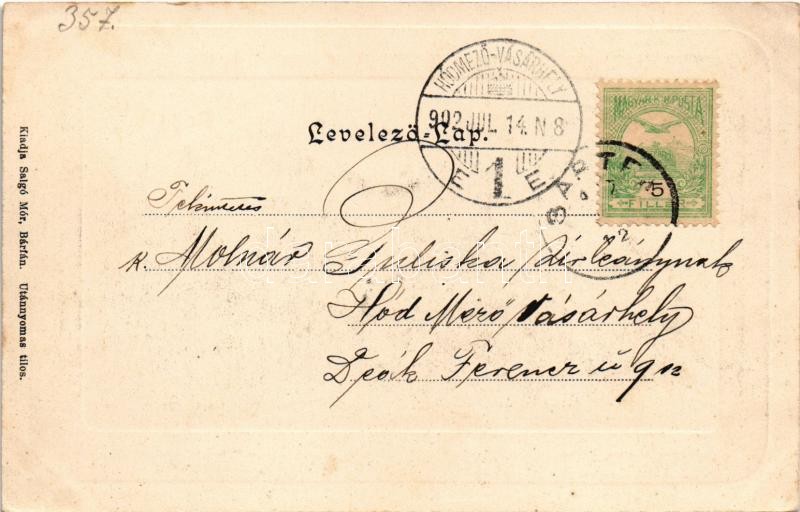 357.
HÓDMEZŐ-VÁSÁRHELY
902 JUL. 14. N 8
1
E E
MAGYAR KIR. POSTA
5
FILLÉR
Levelező-Lap.
Tekintetes
k. Molnár Juliska Úrleánynak
Hód Mező Vásárhely
Deák Ferencz ú 9 sz
Kiadja Salgó Mór, Bártfán. Utánnyomas tilos.